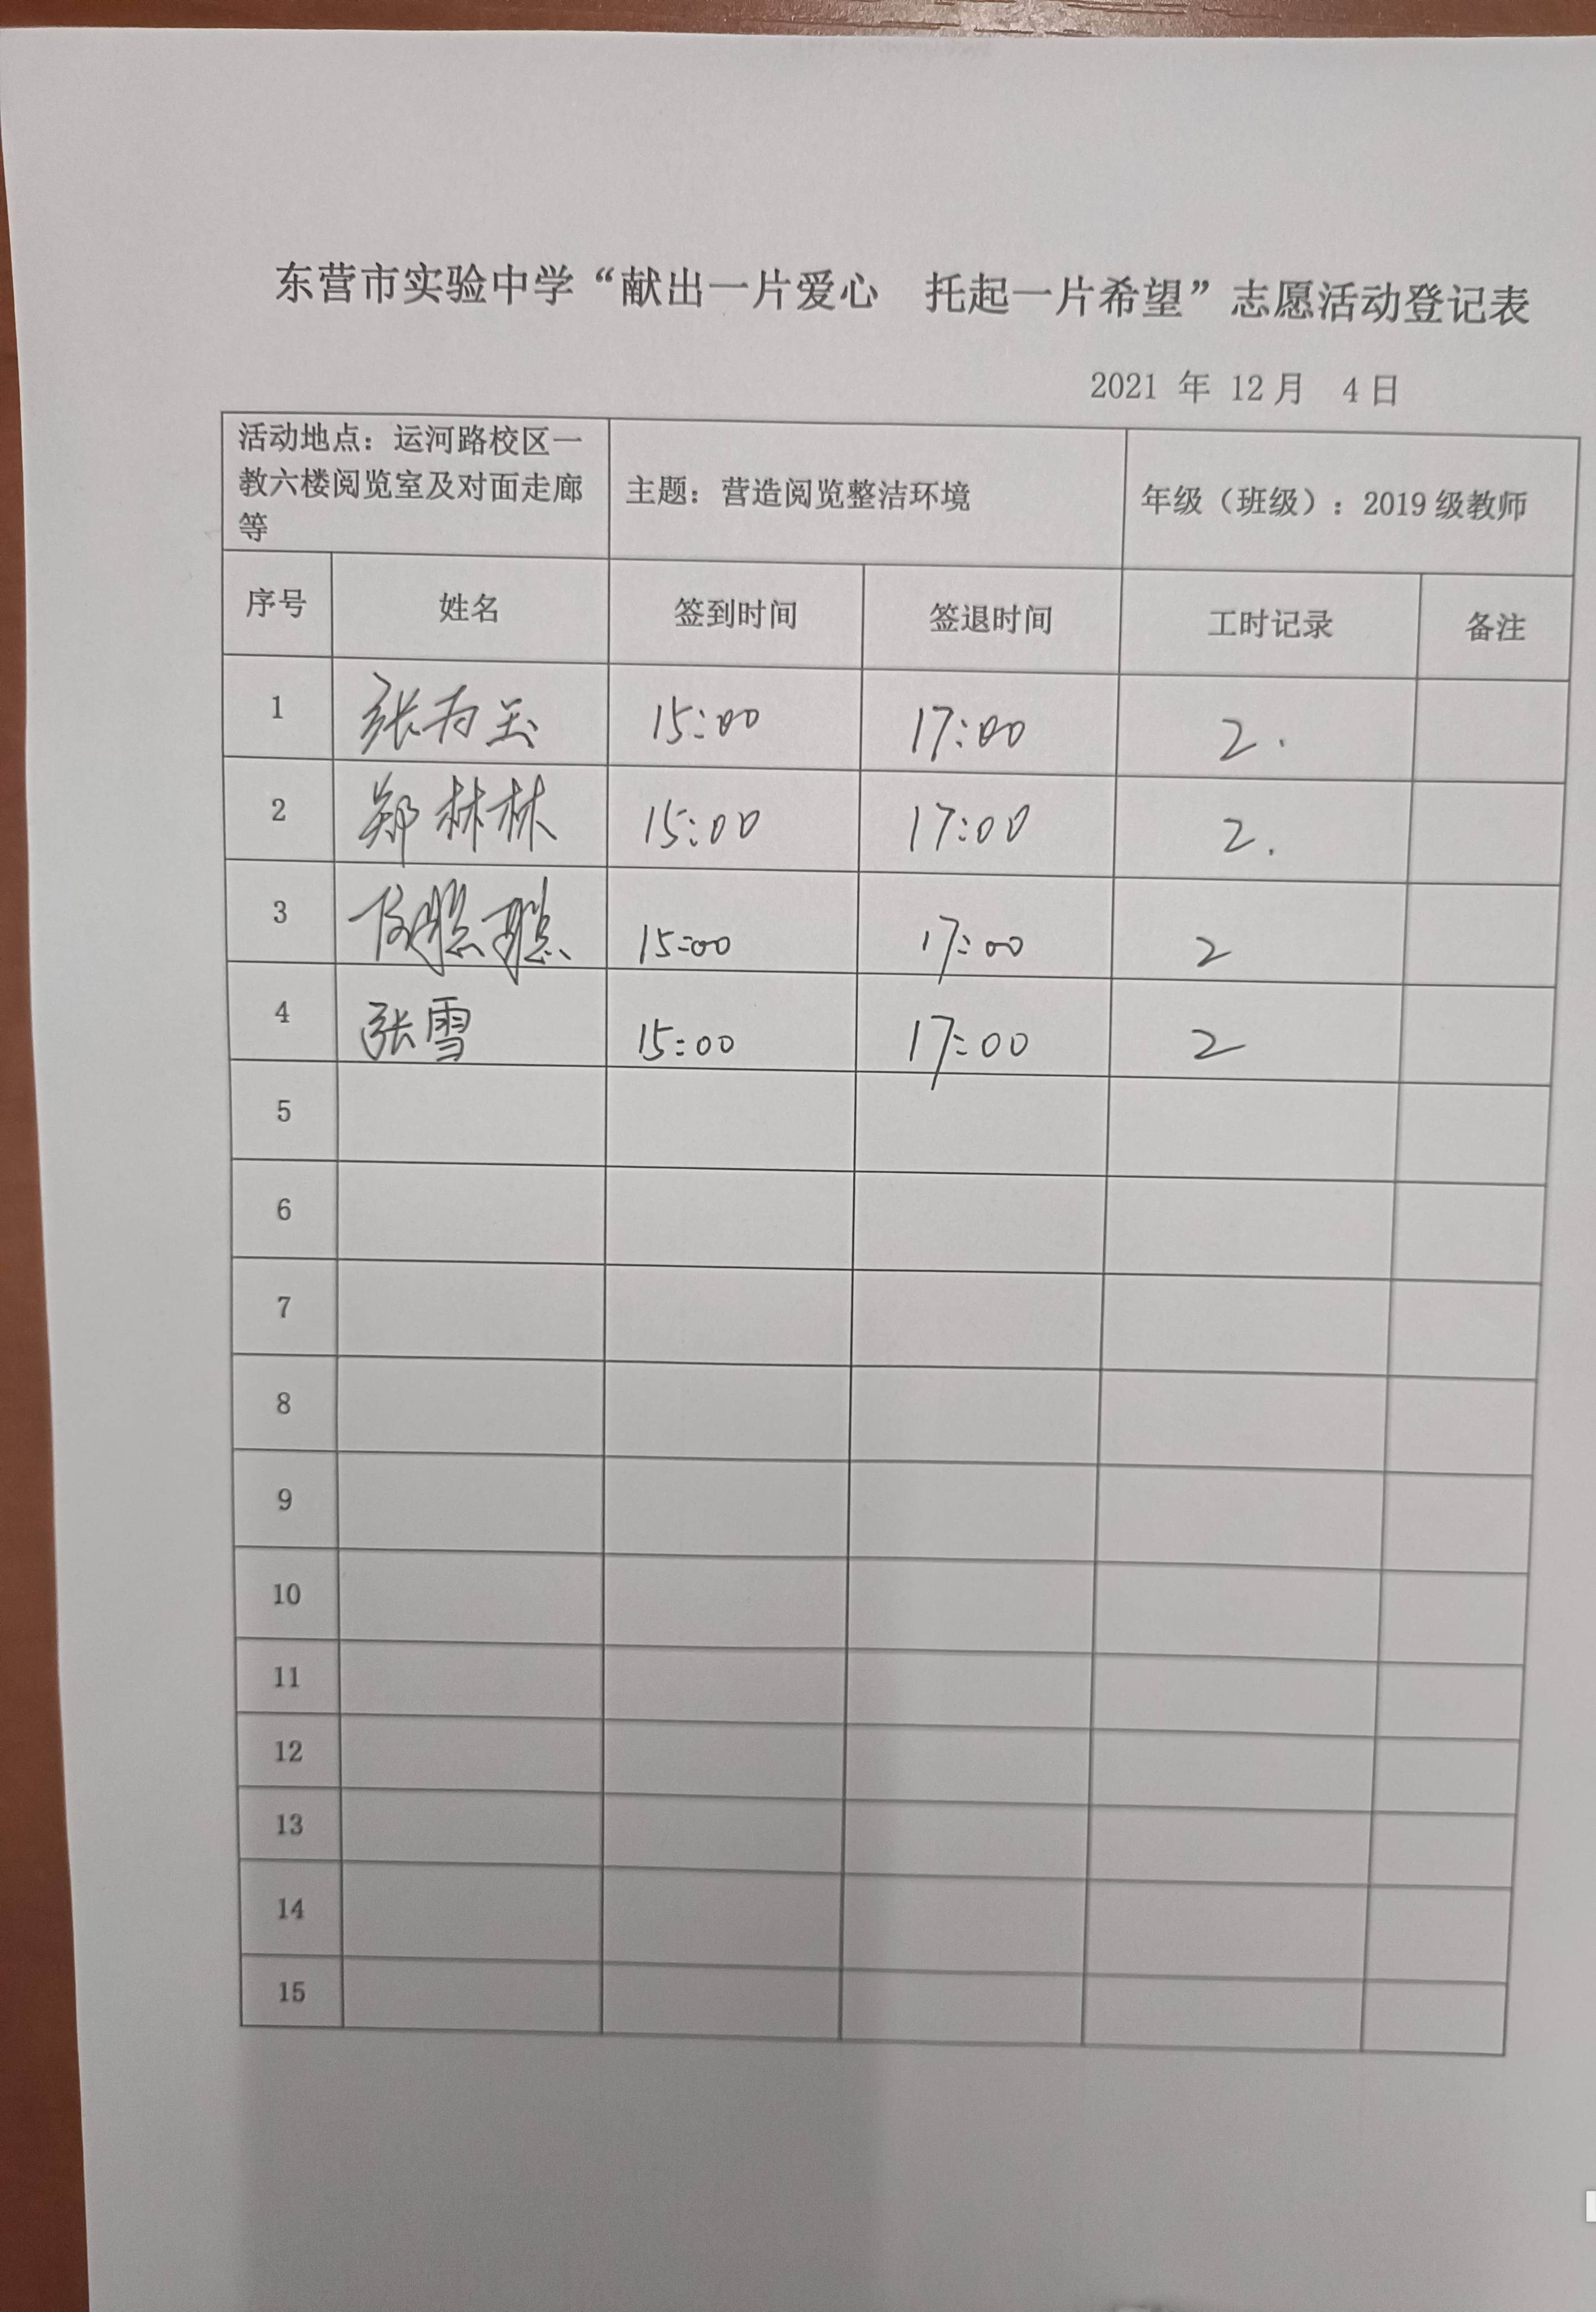 东营市实验中学“献出一片爱心 托起一片希望”志愿活动登记表
2021 年 12月 4日
活动地点：运河路校区一
教六楼阅览室及对面走廊
等
主题：营造阅览整洁环境
年级（班级）：2019 级教师
序号 姓名 签到时间 签退时间 工时记录 备注
1 张为玉 15:00 17:00 2.
2 郑林林 15:00 17:00 2.
3 15:00 17:00 2
4 张雪 15:00 17:00 2
5
6
7
8
9
10
11
12
13
14
15